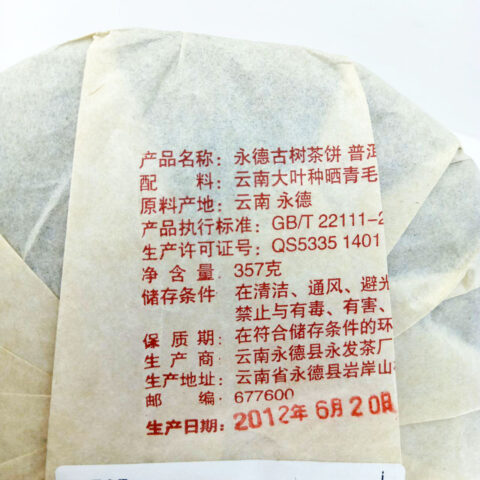 产品名称：永德古树茶饼 普洱
配 料：云南大叶种晒青毛
原料产地：云南 永德
产品执行标准：GB/T 22111-2
生产许可证号：QS5335 1401
净 含 量 357克
储存条件 在清洁、通风、避光
禁止与有毒、有害、
保 质 期：在符合储存条件的环
生 产 商：云南永德县永发茶厂
生产地址：云南省永德县岩岸山
邮 编 677600
生产日期：2012年 6月20日